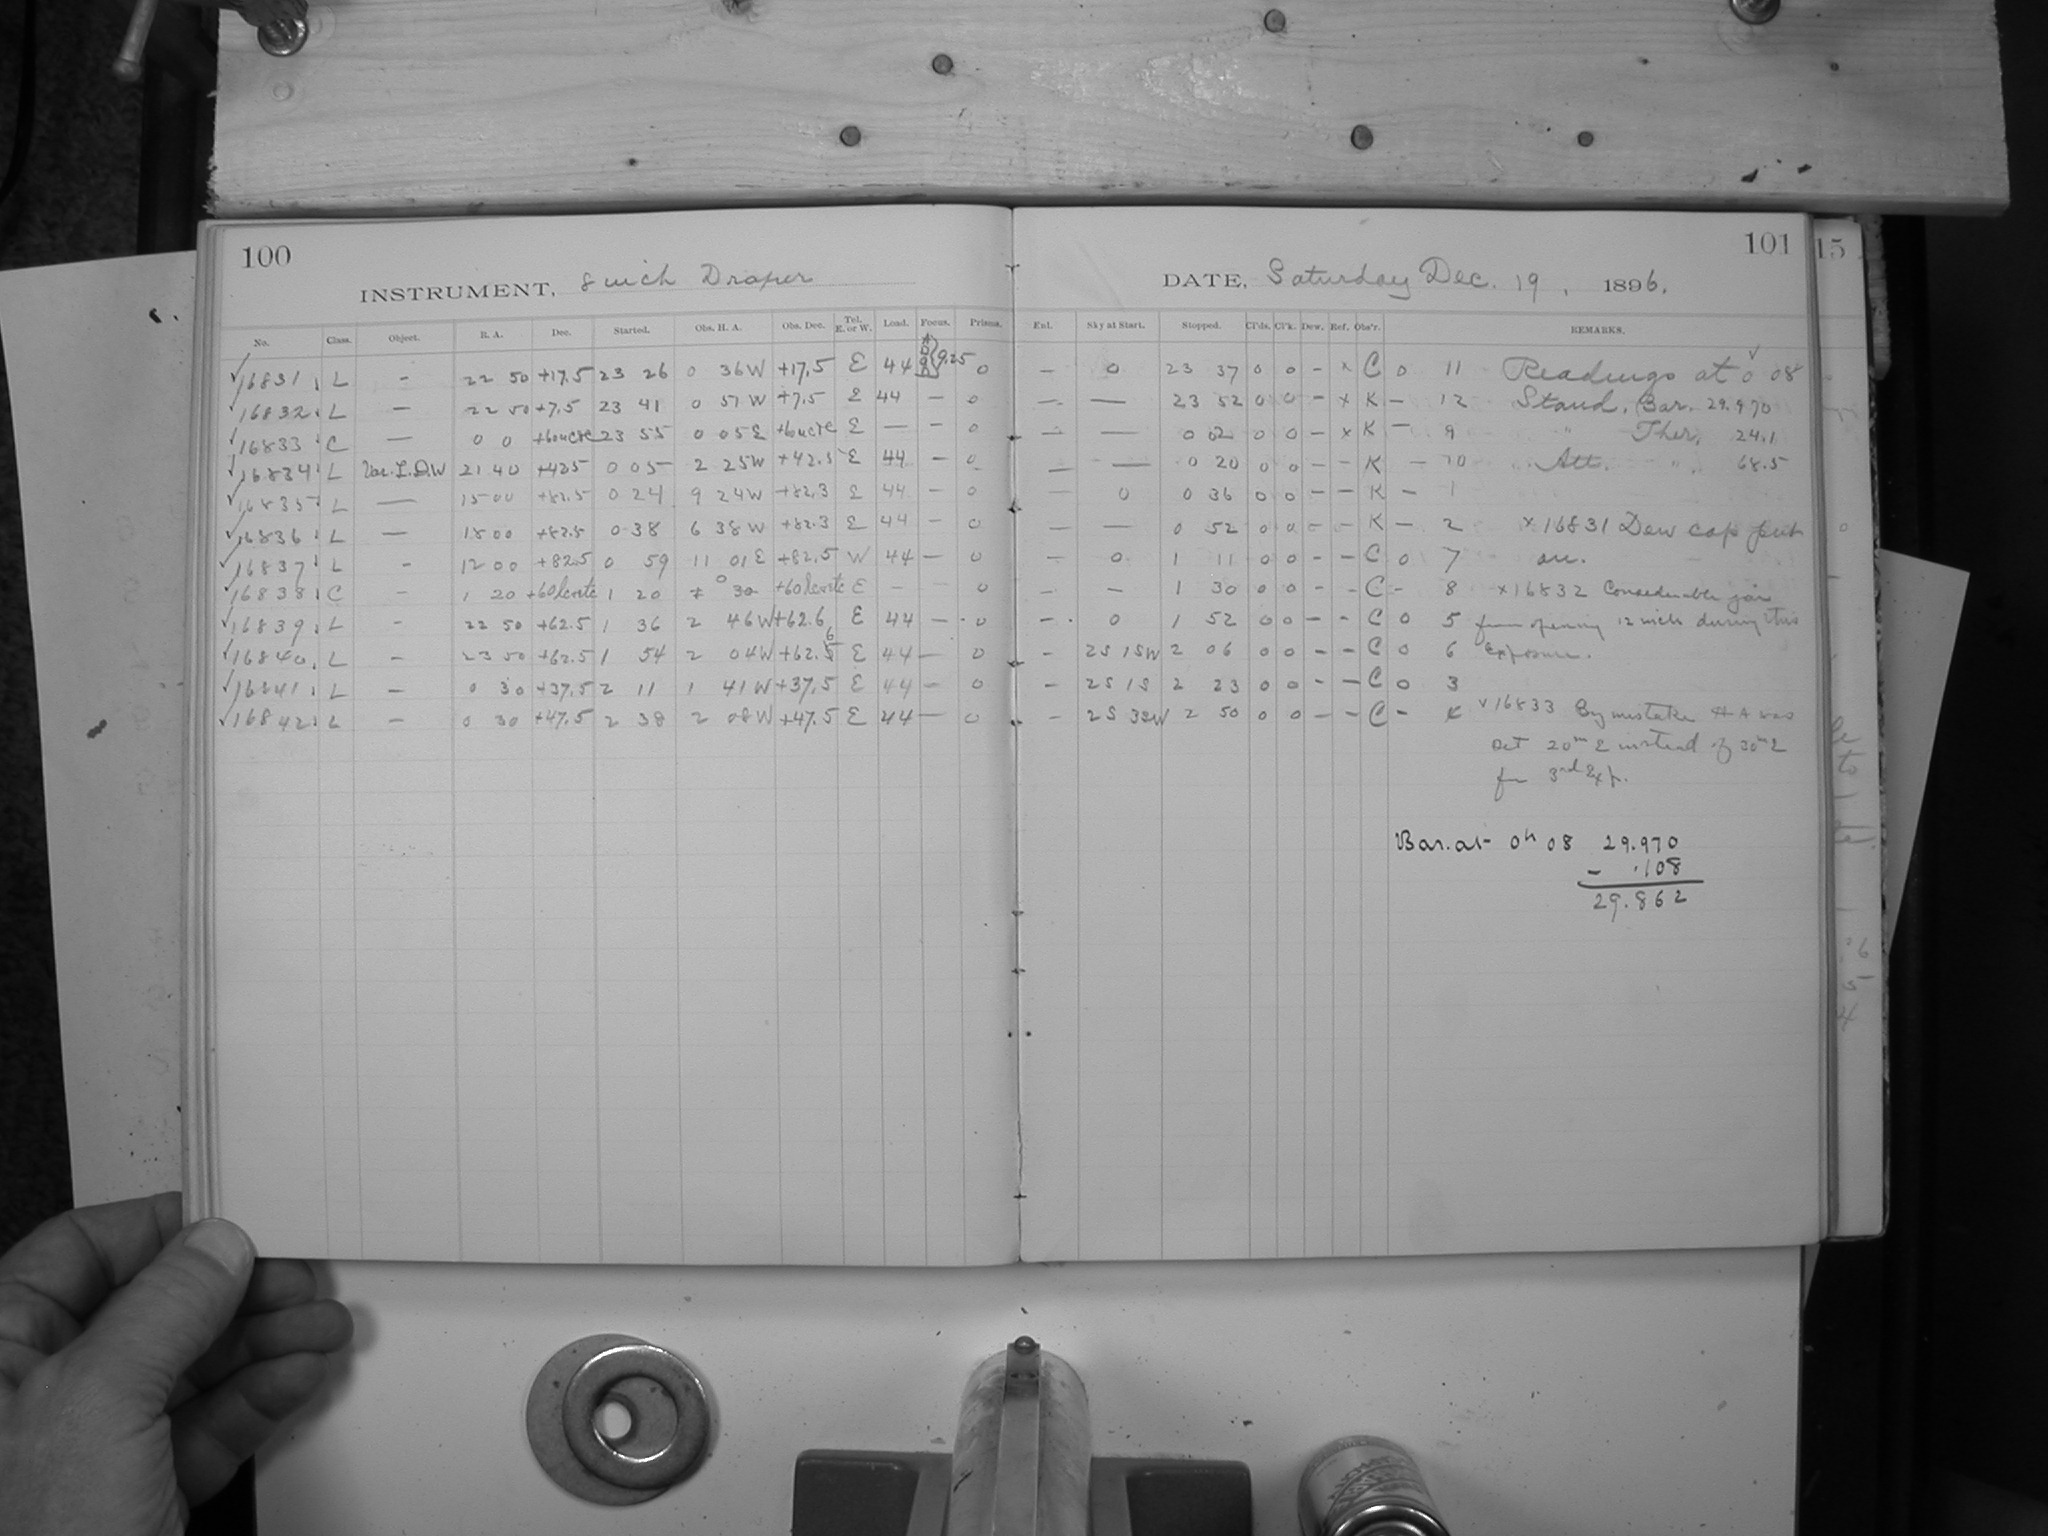 100
INSTRUMENT, 8 inch Draper
No. Class. Object. R. A. Dec. Started. Obs. H. A. Obs. Dec. Tel. E. or W. Load. Focus. Prisms.
✓16831. L – 22 50 +17.5 23 26 0 36W +17.5 E 44 9.25 0
✓16832. L – 22 50 +7.5 23 41 0 51 W +7.5 E 44 – 0
✓16833 C – 0 0 23 55 0 05E E – – 0
✓16834. L Var. L.D.W 21 40 +425 0 05 2 25W +42.5 E 44 – 0
✓16835 L – 15 00 +82.5 0 24 9 24W +82.3 E 44 – 0
✓16836. L – 18 00 +82.5 0 38 6 38W +82.3 E 44 – 0
✓16837. L – 12 00 +82.5 0 59 11 01E +82.5 W 44 – 0
✓16838. C – 1 20 1 20 0 30 E – 0
✓16839. L – 22 50 +62.5 1 36 2 46W +62.6 E 44 – 0
✓16840. L – 23 50 +62.5 1 54 2 04W +62.5 E 44 – 0
✓16841. L – 0 30 +37.5 2 11 1 41W +37.5 E 44 – 0
✓16842. L – 0 30 +47.5 2 38 2 08W +47.5 E 44 – 0
101
DATE, Saturday Dec. 19, 1896.
Enl. Sky at Start. Stopped. Cl'ds. Cl'k. Dew. Ref. Obs'r. REMARKS.
– 0 23 37 0 0 – x C 0 11 Readings at 0 08
– – 23 52 0 0 – x K – 12 Stand. Bar. 29.970
– – 0 02 0 0 – x K – 9 " Ther. 24.1
– – 0 20 0 0 – – K – 10 " Att. " 68.5
– 0 0 36 0 0 – – K – 1
– – 0 52 0 0 – – K – 2 x16831 Dew cap put
– 0 1 11 0 0 – – C 0 7 on.
– – 1 30 0 0 – – C – 8 x16832 Considerable jar
– 0 1 52 0 0 – – C 0 5 from opening 12 inch during this
– 2S 1SW 2 06 0 0 – – C 0 6 exposure.
– 2S 1S 2 23 0 0 – – C 0 3
– 2S 32W 2 50 0 0 – – C –
✓16833 By mistake H A was
set 20m E instead of 30m E
for 3rd Exp.
Bar. at 0h 08 29.970
- .108
29.862
15